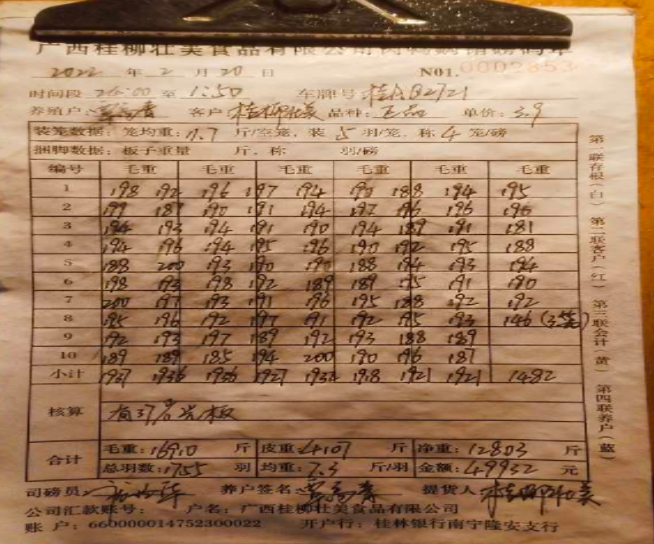 广西桂柳壮美食品有限公司
2022 年 2 月 20 日 N01. 0002853
时间段 26:00 至 1:50 车牌号:桂AB2721
养殖户: 客户:桂柳壮美 品种:正品 单价:3.9
装笼数据:笼均重:11.7 斤/空笼,装 5 羽/笼,称 4 笼/磅
捆脚数据:板子重量 斤,称 羽/磅
编号 毛重 毛重 毛重 毛重 毛重 毛重
1 198 192 196 197 194 190 188 194 195
2 199 187 190 191 194 197 196 196 196
3 194 193 194 191 190 194 189 191 181
4 194 196 194 195 196 190 192 195 188
5 188 200 193 190 190 188 194 193 194
6 198 193 198 192 189 189 195 191 190
7 200 197 193 191 196 195 188 192 192
8 195 196 192 197 191 192 195 193 146 (3笼)
9 192 193 197 189 192 193 188 189
10 189 189 185 194 200 190 196 187
小计 1937 1936 1936 1927 1932 1918 1921 1921 1482
核算 有37名 板
合计 毛重:16910 斤 皮重:4107 斤 净重:12803 斤
总羽数:1755 羽 均重:7.3 斤/羽 金额:49932 元
司磅员: 养户签名: 提货人:桂柳壮美
公司汇款账号: 户名:广西桂柳壮美食品有限公司
账 户:660000014752300022 开户行:桂林银行南宁隆安支行
第一联存根(白) 第二联客户(红) 第三联会计(黄) 第四联养户(蓝)